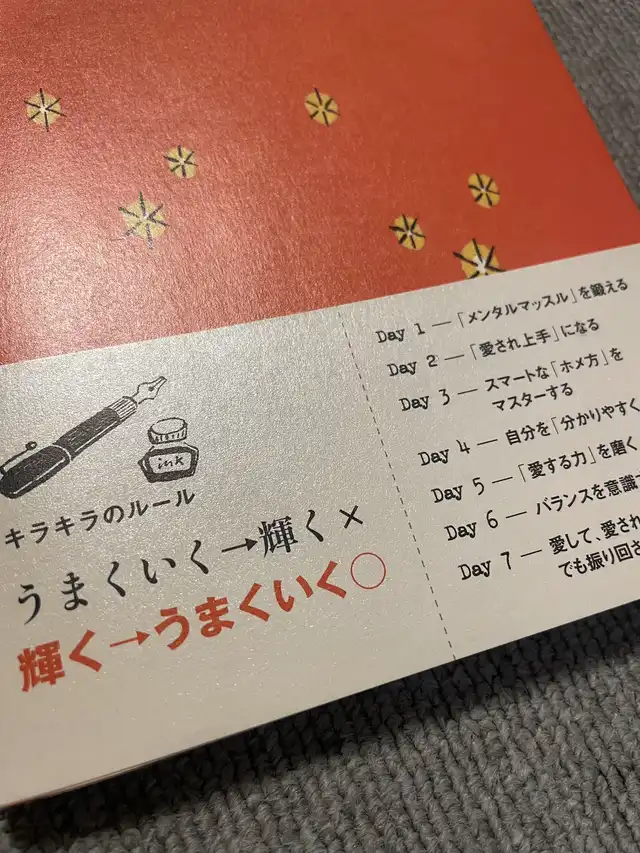 ink
キラキラのルール
うまくいく→輝く×
輝く→うまくいく○
Day 1 ―「メンタルマッスル」を鍛える
Day 2 ―「愛され上手」になる
Day 3 ― スマートな「ホメ方」を
マスターする
Day 4 ― 自分を「分かりやすく
Day 5 ―「愛する力」を磨く
Day 6 ― バランスを意識
Day 7 ― 愛して、愛され
でも振り回さ